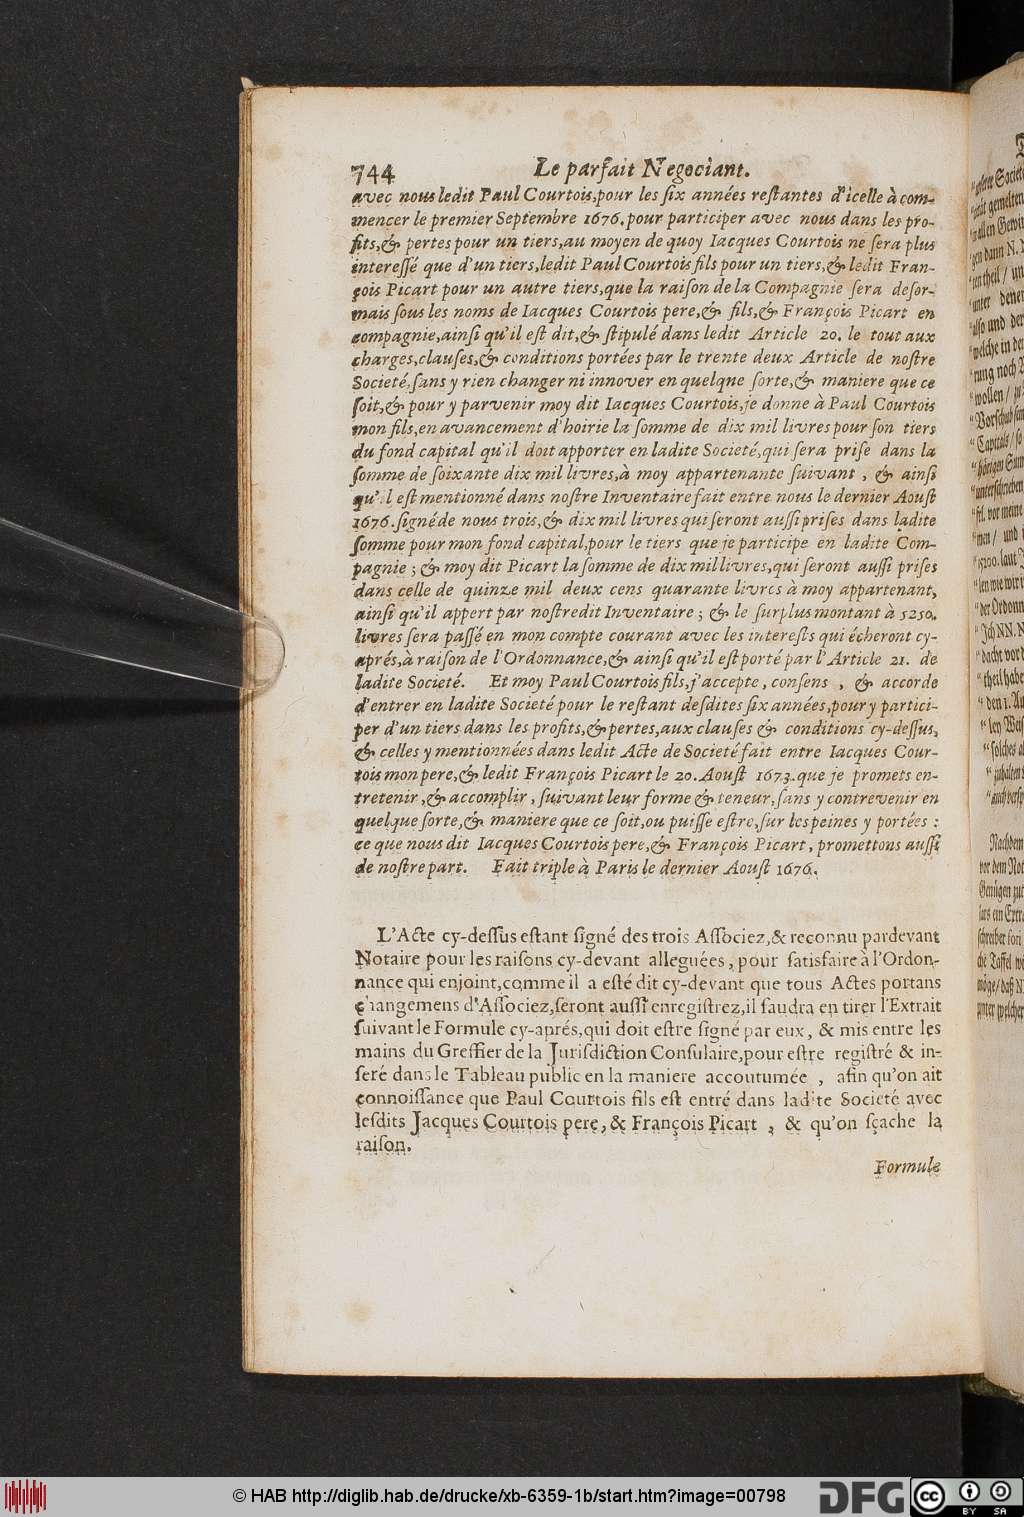 744 Le parfait Negociant.
avec nous ledit Paul Courtois,pour les six années restantes d'icelle à com-
mencer le premier Septembre 1676.pour participer avec nous dans les pro-
fits,& pertes pour un tiers,au moyen de quoy Iacques Courtois ne sera plus
interessé que d'un tiers,ledit Paul Courtois fils pour un tiers,& ledit Fran-
çois Picart pour un autre tiers,que la raison de la Compagnie sera desor-
mais sous les noms de Iacques Courtois pere,& fils,& François Picart en
compagnie,ainsi qu'il est dit,& stipulé dans ledit Article 20. le tout aux
charges,clauses,& conditions portées par le trente deux Article de nostre
Societé,sans y rien changer ni innover en quelqne sorte,& maniere que ce
soit,& pour y parvenir moy dit Iacques Courtois,je donne à Paul Courtois
mon fils,en avancement d'hoirie la somme de dix mil livres pour son tiers
du fond capital qu'il doit apporter en ladite Societé,qui sera prise dans la
somme de soixante dix mil livres,à moy appartenante suivant , & ainsi
qu'il est mentionné dans nostre Inventaire fait entre nous le dernier Aoust
1676.signé de nous trois,& dix mil livres qui seront aussi prises dans ladite
somme pour mon fond capital,pour le tiers que je participe en ladite Com-
pagnie ; & moy dit Picart la somme de dix mil livres,qui seront aussi prises
dans celle de quinze mil deux cens quarante livres à moy appartenant,
ainsi qu'il appert par nostredit Inventaire ; & le surplus montant à 5250.
livres sera passé en mon compte courant avec les interests qui écheront cy-
aprés,à raison de l'Ordonnance,& ainsi qu'il est porté par l'Article 21. de
ladite Societé. Et moy Paul Courtois fils,j'accepte, consens , & accorde
d'entrer en ladite Societé pour le restant desdites six années,pour y partici-
per d'un tiers dans les profits,& pertes,aux clauses & conditions cy-dessus,
& celles y mentionnées dans ledit Acte de Societé fait entre Iacques Cour-
tois mon pere,& ledit François Picart le 20. Aoust 1673.que je promets en-
tretenir ,& accomplir , suivant leur forme & teneur,sans y contrevenir en
quelque sorte,& maniere que ce soit,ou puisse estre,sur les peines y portées :
ce que nous dit Iacques Courtois pere,& François Picart , promettons aussi
de nostre part. Fait triple à Paris le dernier Aoust 1676.
L'Acte cy-dessus estant signé des trois Associez,& reconnu pardevant
Notaire pour les raisons cy-devant alleguées , pour satisfaire à l'Ordon-
nance qui enjoint,comme il a esté dit cy-devant que tous Actes portans
changemens d'Associez,seront aussi enregistrez,il faudra en tirer l'Extrait
suivant le Formule cy-aprés,qui doit estre signé par eux , & mis entre les
mains du Greffier de la Jurisdiction Consulaire,pour estre registré & in-
seré dans le Tableau public en la maniere accoutumée , afin qu'on ait
connoissance que Paul Courtois fils est entré dans ladite Societé avec
lesdits Jacques Courtois pere,& François Picart , & qu'on sçache la
raison.
Formule
© HAB http://diglib.hab.de/drucke/xb-6359-1b/start.htm?image=00798
DFG
cc BY SA